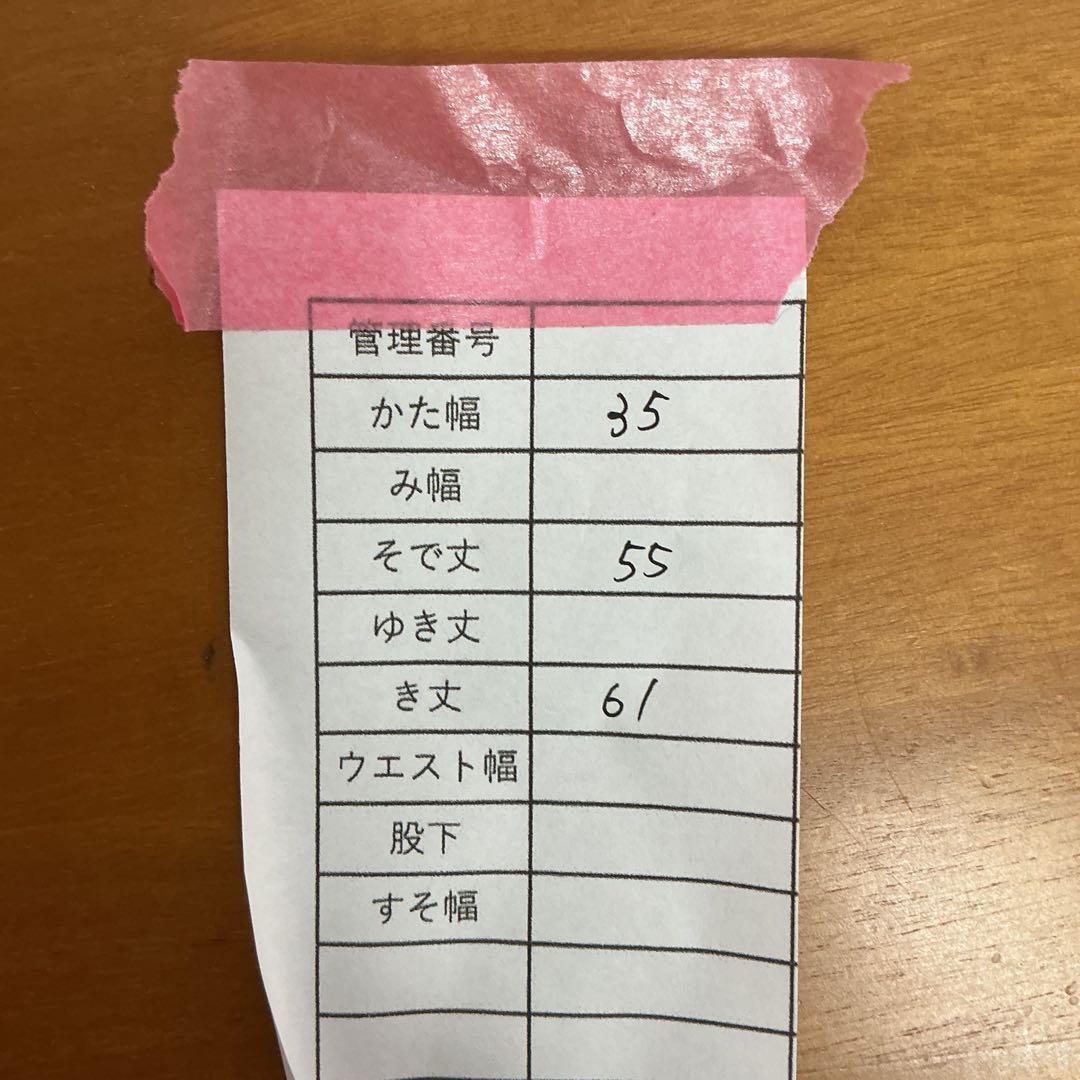 管理番号
かた幅 35
み幅
そで丈 55
ゆき丈
き丈 61
ウエスト幅
股下
すそ幅